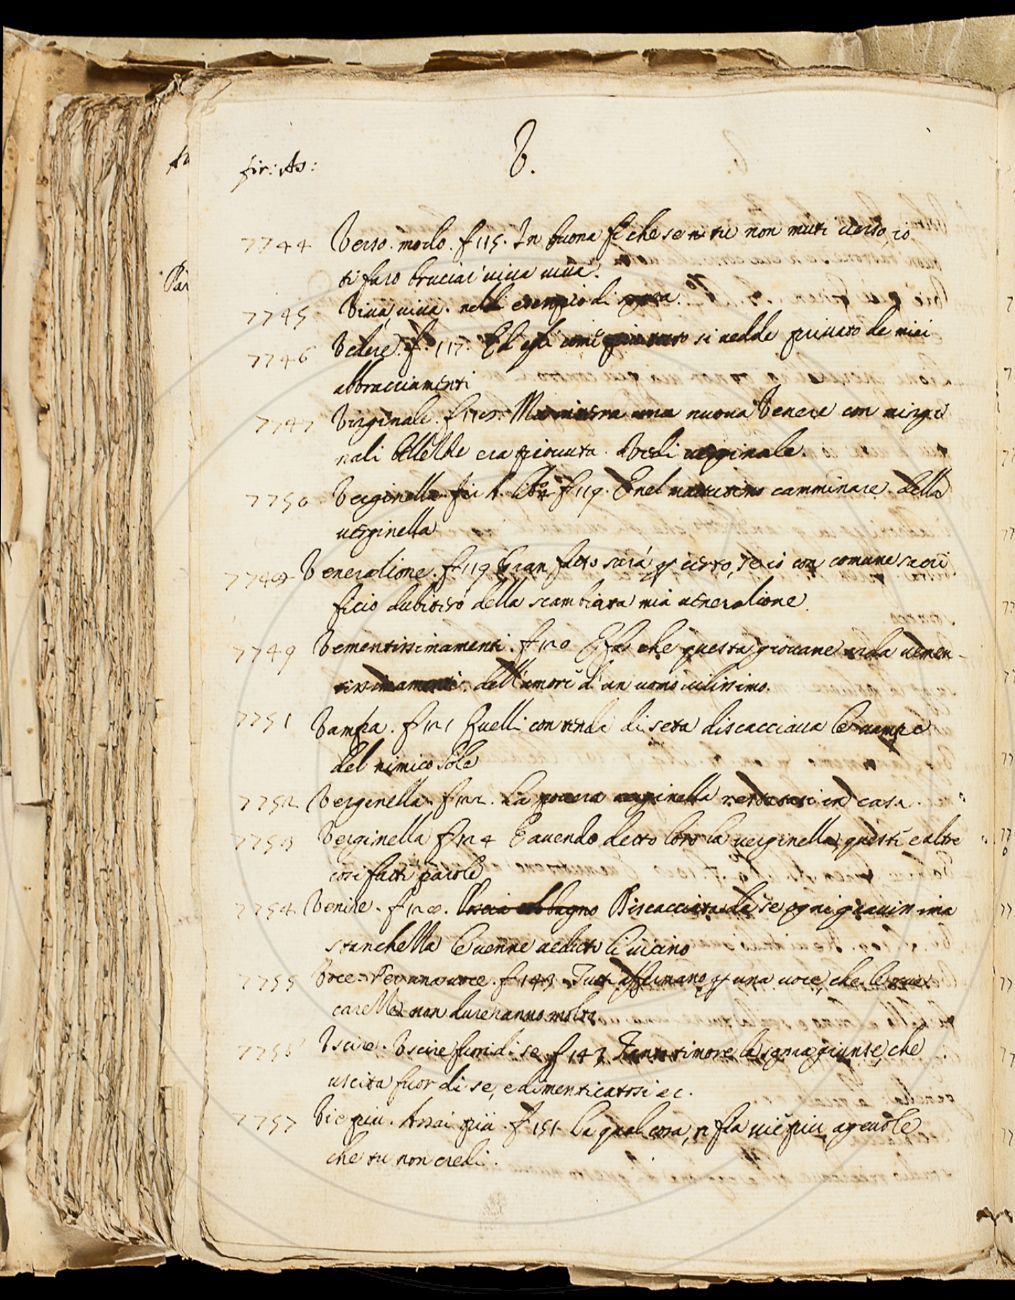 fir: As:
V.
7744 Verso. modo. f 115. In buona fe che se tu non muti verso, io
ti farò bruciar viva viva.
7745 Viva viva. nell' esempio di
7746 Vedere. f. 117. Ed egli si vedde privato de miei
abbracciamenti
7747 Virginale. f una nuova Venere con virgi
nali bellezze era piovuta. Vedi verginale.
7750 Verginella. fir A. f 119. E nel camminare della
verginella
7749 Venerazione. f 119 Gran fatto sarà per certo, se io con comune sacri
ficio dubitoso della scambiata mia venerazione
7749 Vementissimamenti. f 120 E fa che questa giovane arda vemen
tissimamenti dell' amore d' un uomo vilissimo.
7751 Vampa. f 121 Quelli con tenda di seta discacciava le vampe
del nimico Sole
7752 Verginella. f 122. La povera verginella in casa.
7753 Verginella f 124 E avendo detto loro la verginella queste e altre
così fatte parole
7754 Venire. f Discacciata da se ogni gravissima
stanchezza le venne veduto lì vicino
7755 Voce. Per una voce. f 143. Tutti affermano per una voce, che le
carelle non dureranno molto
7756 Uscire. Uscire fuori di se f 147 Tanto timore la sopraggiunse, che
uscita fuor di se, e dimenticatasi ec.
7757 Vie più. Assai più. f 151 La qual cosa, ti fia vie più agevole
che tu non credi.